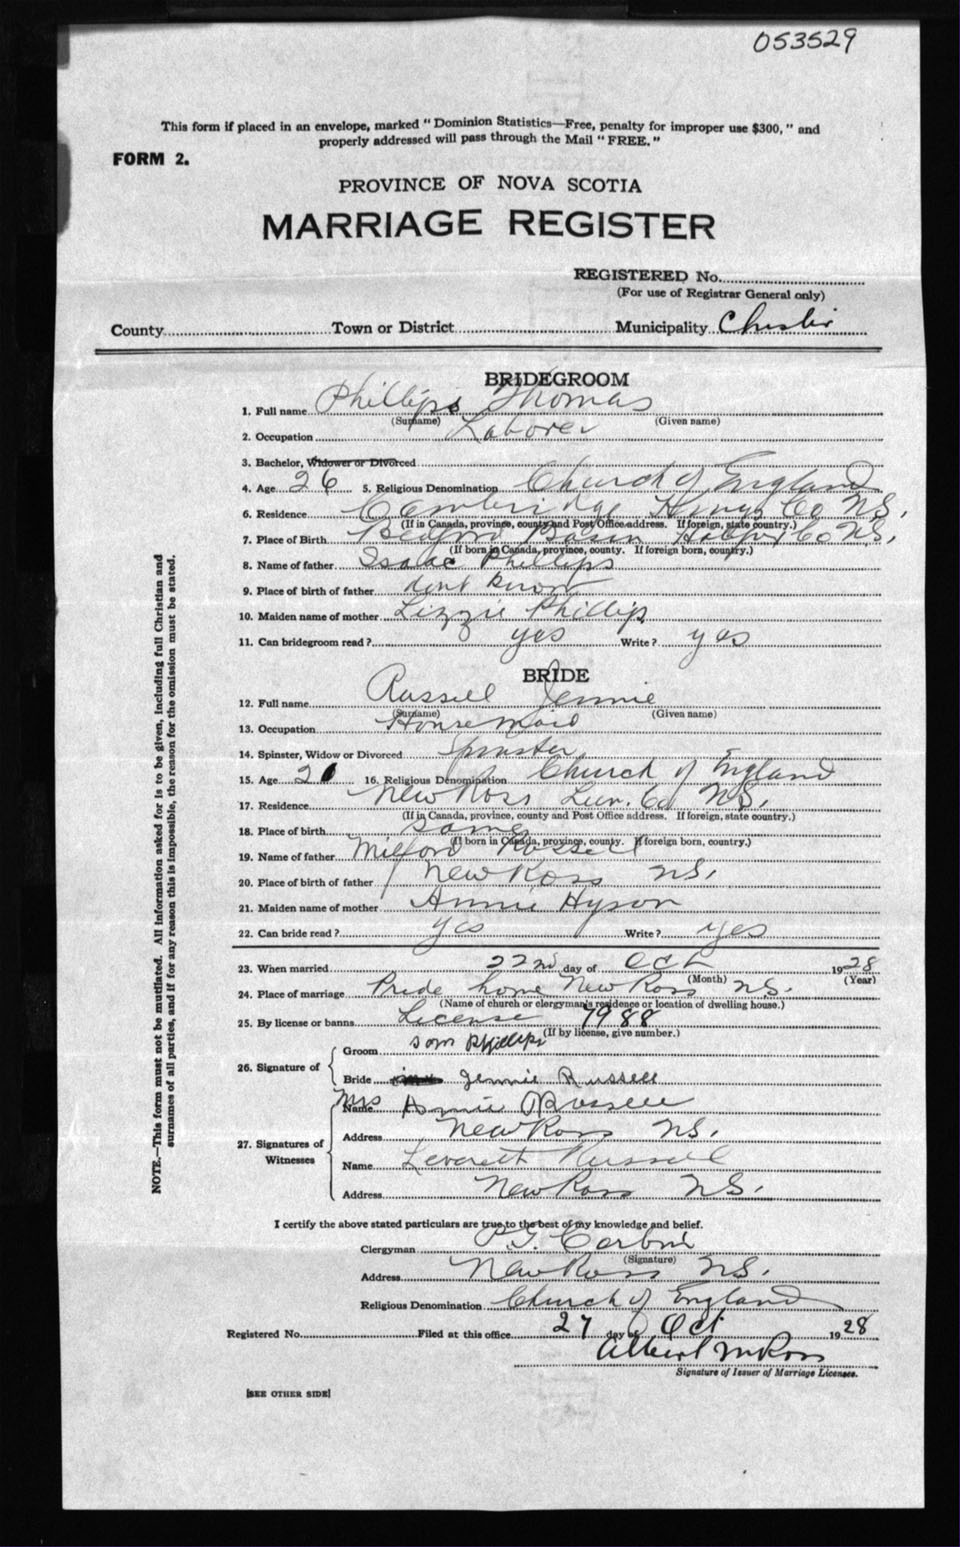 053529
This form if placed in an envelope, marked " Dominion Statistics—Free, penalty for improper use $300, " and
properly addressed will pass through the Mail " FREE. "
FORM 2.
PROVINCE OF NOVA SCOTIA
MARRIAGE REGISTER
REGISTERED No.
(For use of Registrar General only)
County Town or District Municipality Chester
BRIDEGROOM
1. Full name Phillips Thomas
(Surname) (Given name)
2. Occupation Laborer
3. Bachelor, Widower or Divorced
4. Age 26 5. Religious Denomination Church of England
6. Residence Cambridge Kings Co N.S.
(If in Canada, province, county and Post Office address. If foreign, state country.)
7. Place of Birth Bedford Basin Halifax Co N.S.
(If born in Canada, province, county. If foreign born, country.)
8. Name of father Isaac Phillips
9. Place of birth of father dont know
10. Maiden name of mother Lizzie Phillips
11. Can bridegroom read? yes Write? yes
BRIDE
12. Full name Russell Jennie
(Surname) (Given name)
13. Occupation House Maid
14. Spinster, Widow or Divorced spinster
15. Age 20 16. Religious Denomination Church of England
17. Residence New Ross Lun. Co N.S.
(If in Canada, province, county and Post Office address. If foreign, state country.)
18. Place of birth same
(If born in Canada, province, county. If foreign born, country.)
19. Name of father Milford Russell
20. Place of birth of father New Ross N.S.
21. Maiden name of mother Annie Hyson
22. Can bride read? yes Write? yes
23. When married 22nd day of Oct 1928
(Month) (Year)
24. Place of marriage Bride home New Ross N.S.
(Name of church or clergyman's residence or location of dwelling house.)
25. By license or banns License 7988
(If by license, give number.)
26. Signature of
Groom Tom Phillips
Bride Jennie Russell
27. Signatures of Witnesses
Name Mrs Annie Russell
Address New Ross N.S.
Name Leverett Russell
Address New Ross N.S.
I certify the above stated particulars are true to the best of my knowledge and belief.
Clergyman
(Signature)
Address New Ross N.S.
Religious Denomination Church of England
Registered No. Filed at this office 27 day of Oct 1928
Albert M Ross
Signature of Issuer of Marriage Licenses.
[SEE OTHER SIDE]
NOTE.—This form must not be mutilated. All information asked for is to be given, including full Christian and
surnames of all parties, and if for any reason this is impossible, the reason for the omission must be stated.